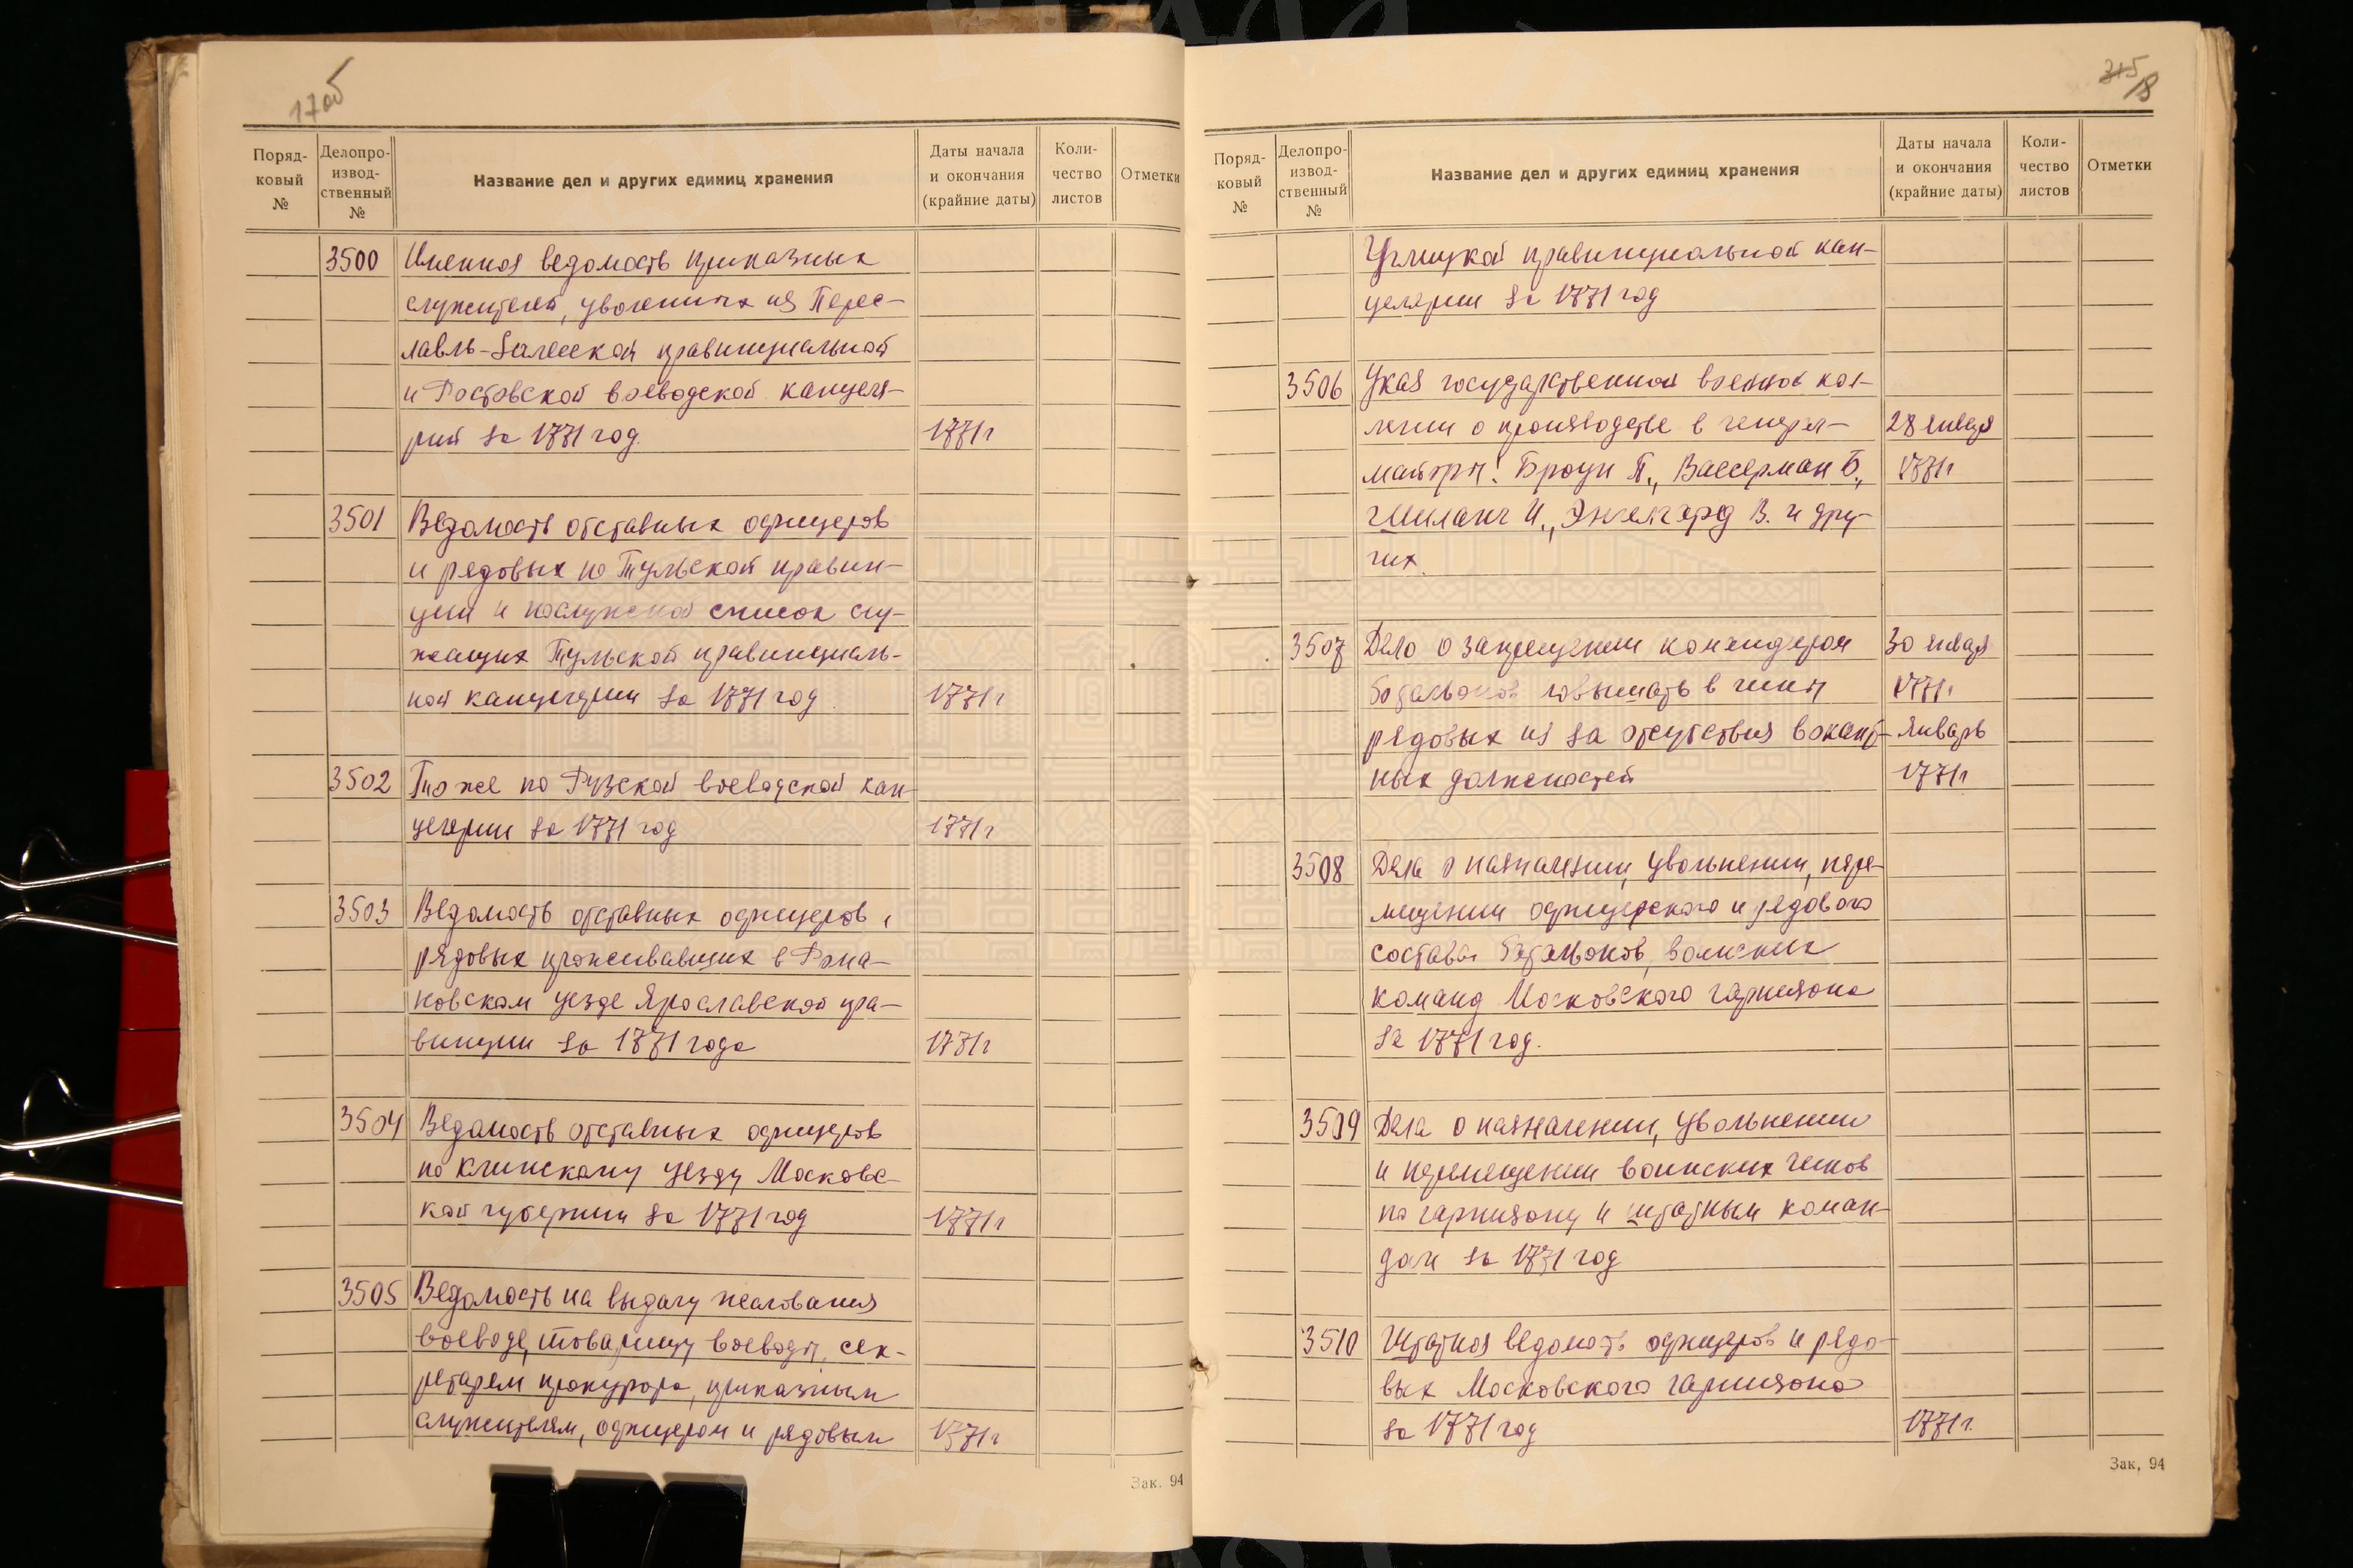 17об
Поряд-
ковый
№
Делопро-
извод-
ственный
№
Название дел и других единиц хранения
Даты начала
и окончания
(крайние даты)
Коли-
чество
листов
Отметки
3500 Именная ведомость приказных
служителей, уволенных из Перес-
лавль-Залесской правинциальной
и Ростовской воеводской канцеля-
рий за 1771 год. 1771г
3501 Ведомость отставных офицеров
и рядовых по Тульской правин-
ции и послужной список слу-
жащих Тульской правинциаль-
ной канцелярии за 1771 год. 1771г
3502 То же по Рузской воеводской кан-
целярии за 1771 год 1771г
3503 Ведомость отставных офицеров и
рядовых проживавших в Рома-
новском уезде Ярославской пра-
винции за 1771 года 1771г
3504 Ведомость отставных офицеров
по Клинскому уезду Московс-
кой губернии за 1771 год 1771г
3505 Ведомость на выдачу жалования
воеводе, товарищу воеводы, сек-
ретарям прокурора, приказным
служителям, офицерам и рядовым 1771г
Зак. 94
315
18
Поряд-
ковый
№
Делопро-
извод-
ственный
№
Название дел и других единиц хранения
Даты начала
и окончания
(крайние даты)
Коли-
чество
листов
Отметки
Углицкой правинциальной кан-
целярии за 1771 год
3506 Указ государственной военной кол-
легии о производстве в генерал- 28 января
майоры: Броун П., Вассерман Б., 1771г
Шиланг И., Энгелгард В. и дру-
гих.
3507 Дело о запрещении командерам 30 января
батальонов повышать в чины 1771г
рядовых из за отсутствия вакант- Январь
ных должностей 1771г
3508 Дела о назначении, увольнении, пере-
мещении офицерского и рядового
состава батальонов, воинских
команд Московского гарнизона
за 1771 год.
3509 Дела о назначении, увольнении
и перемещении воинских чинов
по гарнизону и штатным коман-
дам за 1771 год
3510 Штатная ведомость офицеров и рядо-
вых Московского гарнизона
за 1771 год 1771г.
Зак. 94